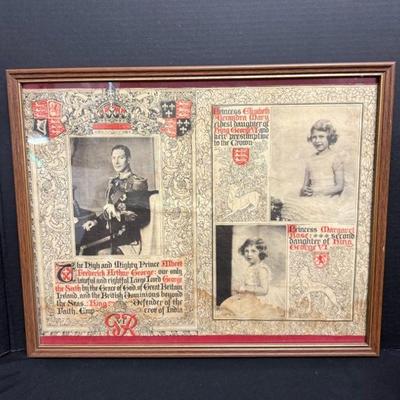 The High and Mighty Prince Albert
Frederick Arthur George: our only
lawful and rightful Liege Lord George
the Sixth by the Grace of God, of Great Britain
Ireland, and the British Dominions beyond
the Seas King Defender of the
Faith Emp eror of India
GR
VI
Princess Elizabeth
Alexandra Mary
eldest daughter of
King George VI and
heir presumptive
to the Crown
Princess Margaret
Rose second
daughter of King
George VI